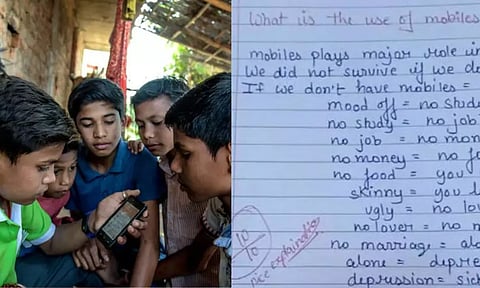 What is the use of mobiles
mobiles plays major role in
We did not survive if we do
If we don't have mobiles =
mood off = no study
no study = no job
no job = no mon
no money = no fo
no food = you
skinny = you l
ugly = no lo
no lover = no m
no marriage = alo
alone = depre
depression = sick
10
10
nice explanation